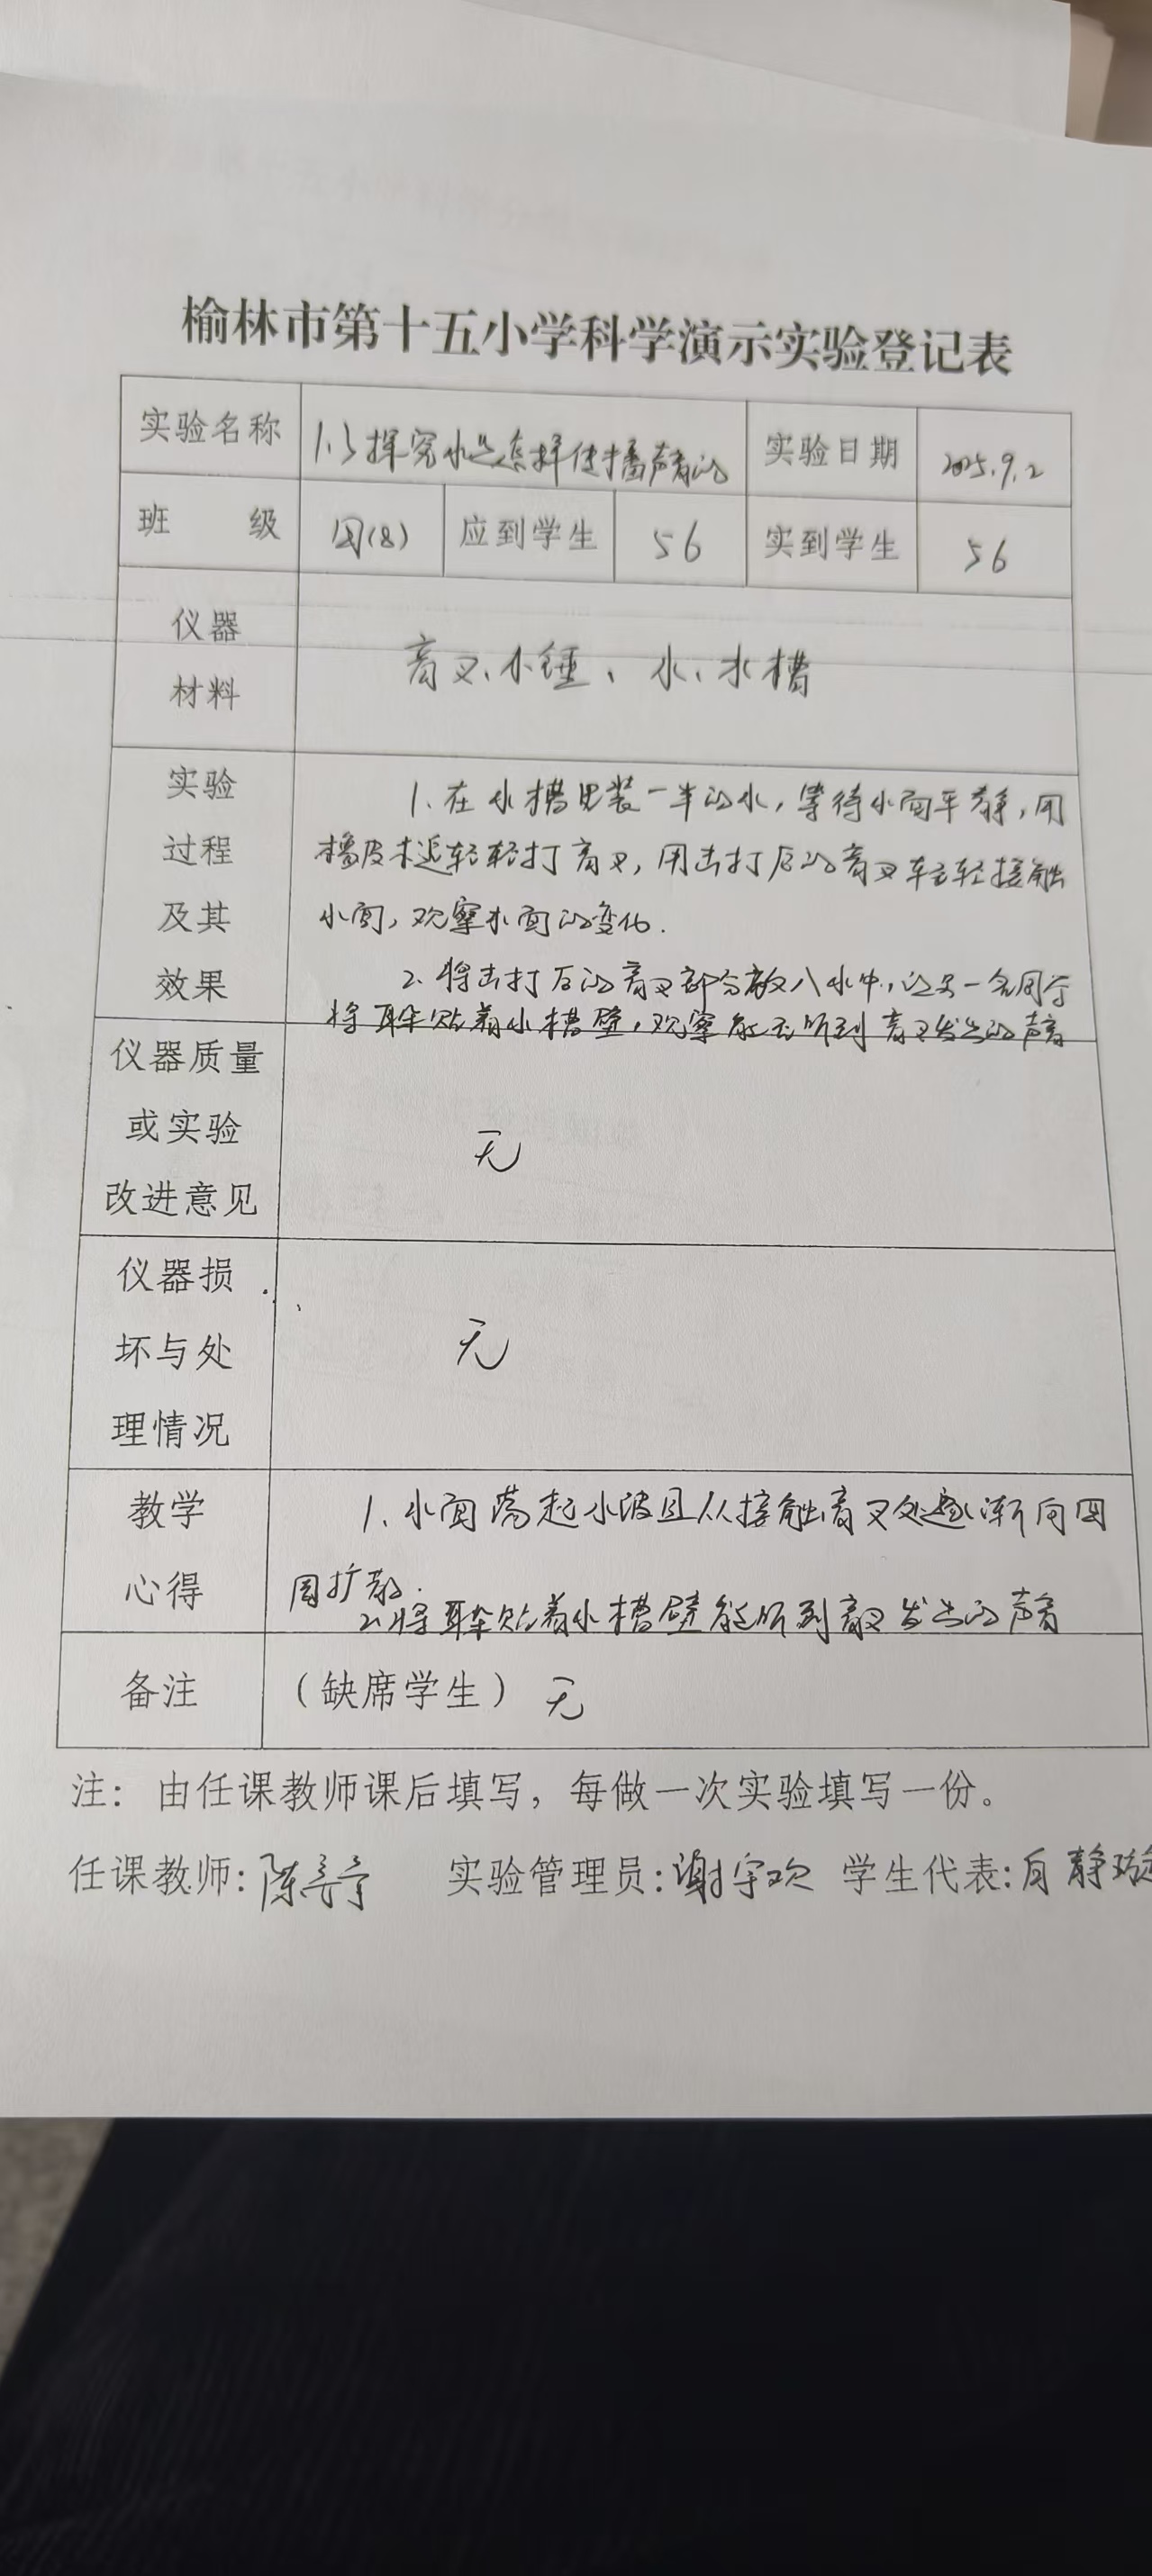 榆林市第十五小学科学演示实验登记表
实验名称 1.3探究水是怎样传播声音的 实验日期 2025.9.2
班 级 四(8) 应到学生 56 实到学生 56
仪器
材料
音叉、小锤、水、水槽
实验
过程
及其
效果
1.在水槽里装一半的水,等待水面平静,用
橡皮槌轻轻打音叉,用击打后的音叉轻轻接触
水面,观察水面的变化.
2.将击打后的音叉部分放入水中,让另一名同学
将耳朵贴着水槽壁,观察能否听到音叉发出的声音
仪器质量
或实验
改进意见
无
仪器损
坏与处
理情况
无
教学
心得
1.水面荡起水波且从接触音叉处逐渐向四
周扩散.
2.将耳朵贴着水槽壁能听到音叉发出的声音
备注 (缺席学生) 无
注:由任课教师课后填写,每做一次实验填写一份。
任课教师:陈 实验管理员:谢宇欢 学生代表: 静